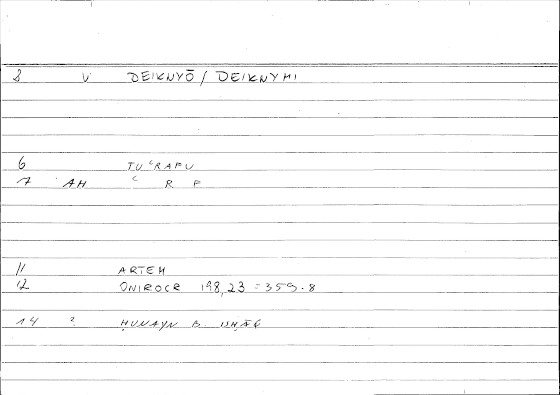 8 V DEIKNYŌ / DEIKNYMI
6 TUʿRAFU
7 AH ʿ R F
11 ARTEM
12 ONIROCR 198,23 = 359.8
14 2 ḤUNAYN B. ISḤĀQ